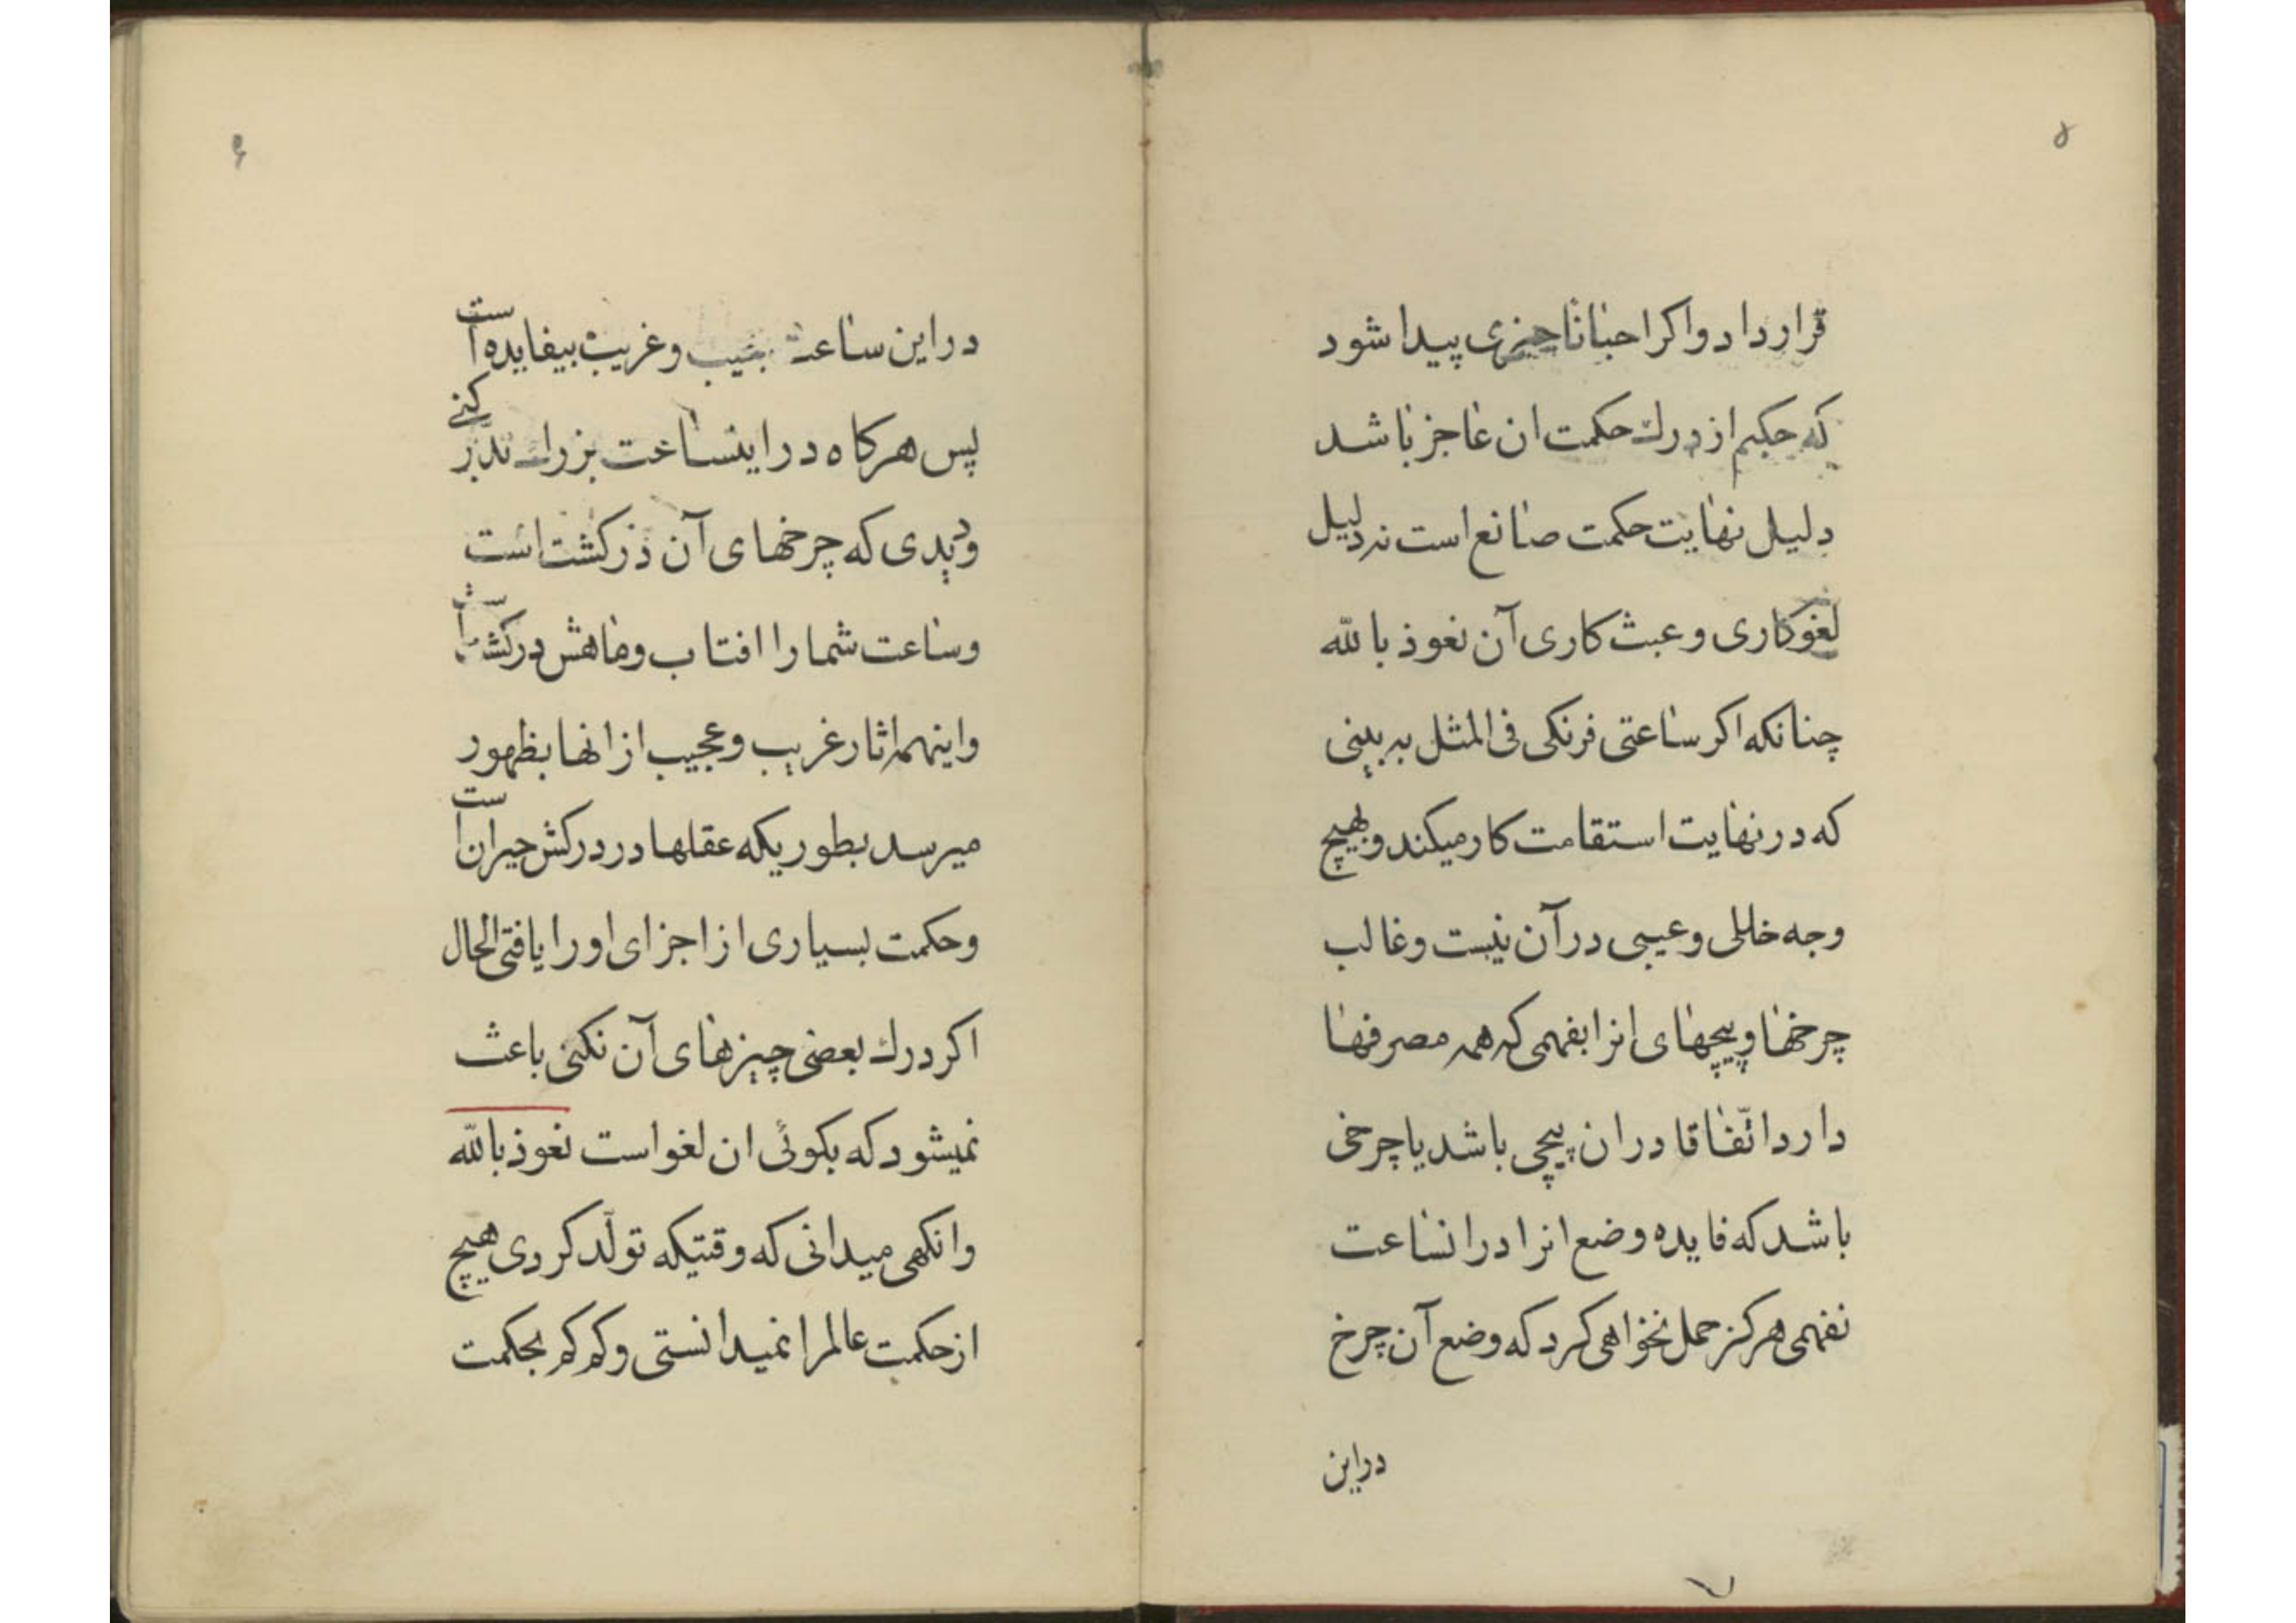 ۵
قرار داد و اکر احیانا چیزی پیدا شود
که حکیم از درك حکمت ان عاجز باشد
دلیل نهایت حکمت صانع است نه دلیل
لغوکاری و عبث کاری آن نعوذ بالله
چنانکه اکر ساعتی فرنکی فی المثل به بینی
که در نهایت استقامت کار میکند و بهیچ
وجه خللی و عیبی در آن نیست و غالب
چرخها و پیچهای انرا بفهمی که همه مصرفها
دارد اتّفاقا در ان پیچی باشد یا چرخی
باشد که فایده وضع انرا در انساعت
نفهمی هرکز حمل نخواهی کرد که وضع آن چرخ
در این
۶
در این ساعت عجیب و غریب بیفایده است
پس هرکاه در اینساعت بزرك تدبّر کنی
و دیدی که چرخهای آن ذر کشت است
و ساعت شما را افتاب و ماهش در کشت است
و اینهمه اثار غریب و عجیب از انها بظهور
میرسد بطوریکه عقلها در درکش حیران است
و حکمت بسیاری از اجزای او را یافتی الحال
اکر درك بعضی چیزهای آن نکنی باعث
نمیشود که بکوئی ان لغو است نعوذ بالله
وانکهی میدانی که وقتیکه تولّد کردی هیچ
از حکمت عالم را نمیدانستی و کم کم بحکمت